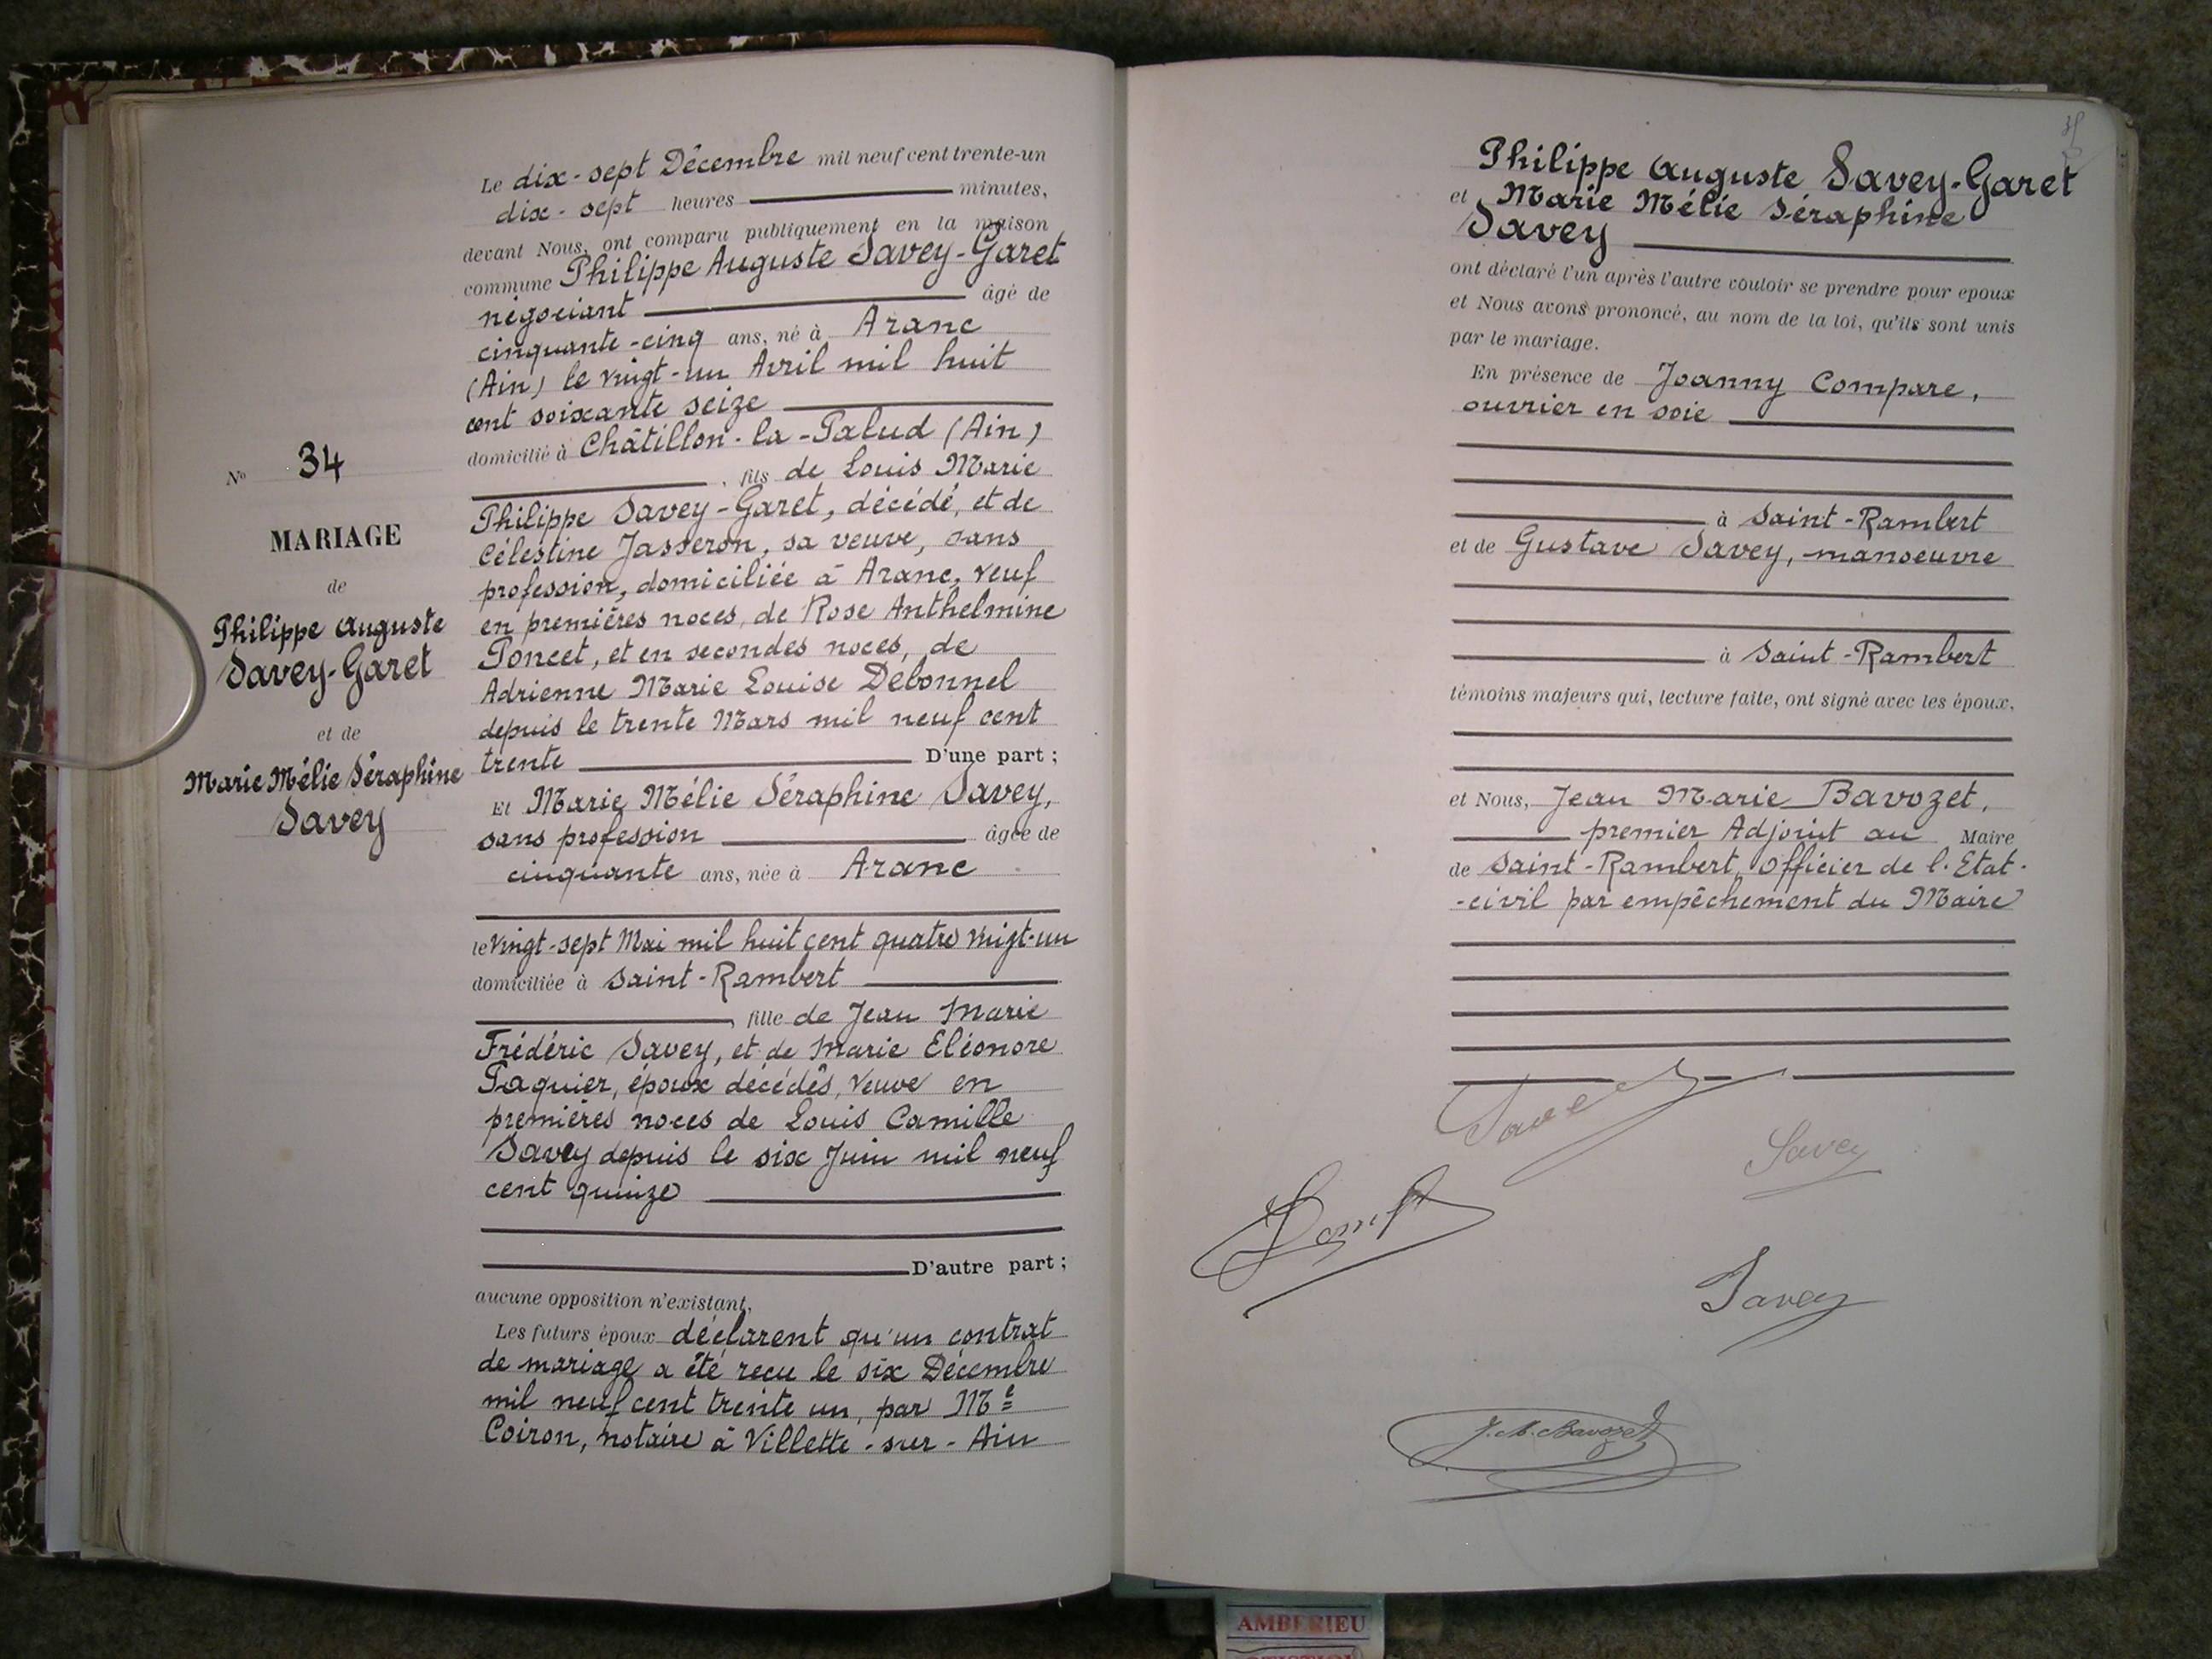 N° 34
MARIAGE
de
Philippe Auguste
Savey-Garet
et de
Marie Mélie Séraphine
Savey
Le dix-sept Décembre mil neuf cent trente-un
dix-sept heures minutes,
devant Nous, ont comparu publiquement en la maison
commune Philippe Auguste Savey-Garet
négociant âgé de
cinquante-cinq ans, né à Aranc
(Ain) le vingt-un Avril mil huit
cent soixante seize
domicilié à Châtillon-la-Palud (Ain)
, fils de Louis Marie
Philippe Savey-Garet, décédé, et de
Célestine Jasseron, sa veuve, sans
profession, domiciliée à Aranc, veuf
en premières noces, de Rose Anthelmine
Poncet, et en secondes noces, de
Adrienne Marie Louise Debonnel
depuis le trente Mars mil neuf cent
trente D'une part ;
Et Marie Mélie Séraphine Savey,
sans profession âgée de
cinquante ans, née à Aranc
le vingt-sept Mai mil huit cent quatre vingt-un
domiciliée à Saint-Rambert
, fille de Jean Marie
Frédéric Savey, et de Marie Eléonore
Paquier, époux décédés, veuve en
premières noces de Louis Camille
Savey depuis le six Juin mil neuf
cent quinze
D'autre part ;
aucune opposition n'existant,
Les futurs époux déclarent qu'un contrat
de mariage a été reçu le six Décembre
mil neuf cent trente un, par Me
Coiron, notaire à Villette-sur-Ain
Philippe Auguste Savey-Garet
et Marie Mélie Séraphine
Savey
ont déclaré l'un après l'autre vouloir se prendre pour epoux
et Nous avons prononcé, au nom de la loi, qu'ils sont unis
par le mariage.
En présence de Joanny Compare,
ouvrier en soie
à Saint-Rambert
et de Gustave Savey, manoeuvre
à Saint-Rambert
témoins majeurs qui, lecture faite, ont signé avec les époux.
et Nous, Jean Marie Bavozet,
premier Adjoint au Maire
de Saint-Rambert, Officier de l'Etat-
-civil par empêchement du Maire
Savey
Savey
Savey
J. M. Bavozet
AMBERIEU